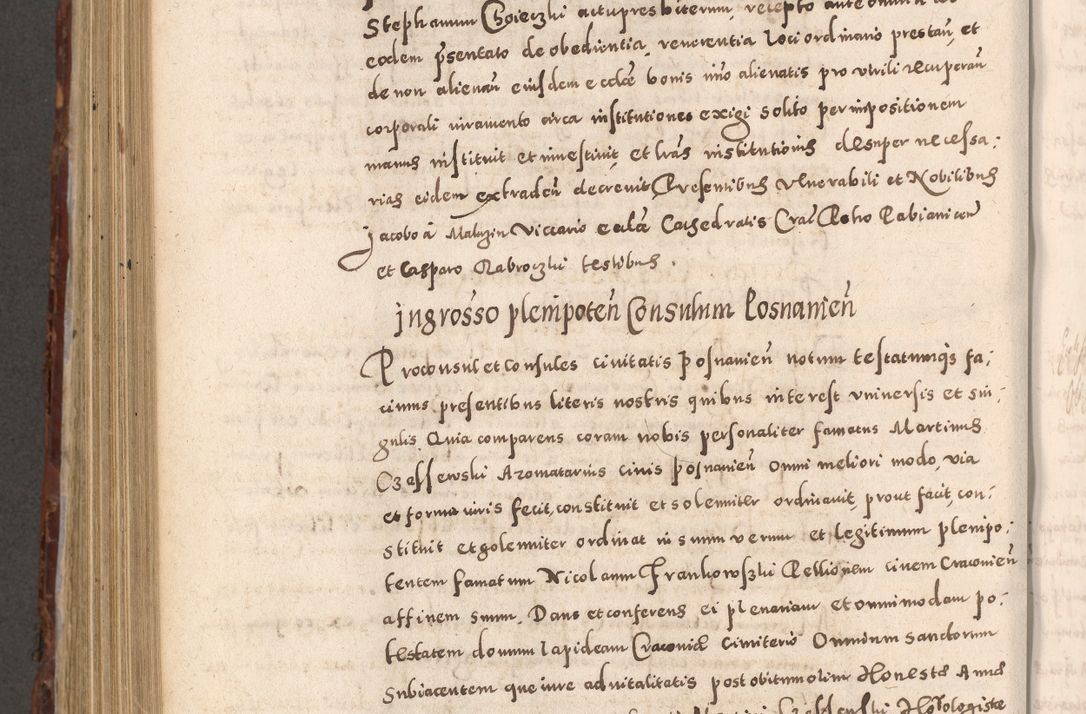 Stephanum Choieczki actu presbiterum, recepto ante omnia ab
eodem p̃sentato de obedientia, reuerentia loci ordinario prestañ, et
de non alienañ eiusdem eccłae bonis imo alienatis pro vtrili recuperañ
corporali iuramento circa institutiones exigi solito per impositionem
manus instituit et inuestiuit, et lr̃as institutionis desuper necessa-
rias eidem extradeñ decreuit Presentibus Venerabili et Nobilibus
Jacobo à Matuzin Viccario eccłae Cathedralis Crac̃ Petro Pabianicen̄
et Casparo Nabroczki testibus.
Ingrosso plenipoteñ Consulum Posnanieñ
Proconsul et Consules ciuitatis Posnanieñ notum testatumq̃s fa-
cimus presentibus literis nostris quibus interest vniuersis et sin-
gulis Quia comparens coram nobis personaliter famatus Martinus
Czessewski Aromatarius ciuis Posnanieñ Omni meliori modo, via
et forma iuris fecit, constituit et solemniter ordinauit, prout facit, con-
stituit et solemniter ordinat in suum verum et legitimum plenipo-
tentem famatum Nicolaum Frankowszki Pellionem ciuem Cracouieñ
affinem suum. Dans et conferens ei plenariam et omnimodam po-
testatem domum lapideam Cracouiæ cimiterio Omnium Sanctorum
Subiacentem que iure aduitalitatis post obitum olim Honestæ Annæ
Martini Horologistæ